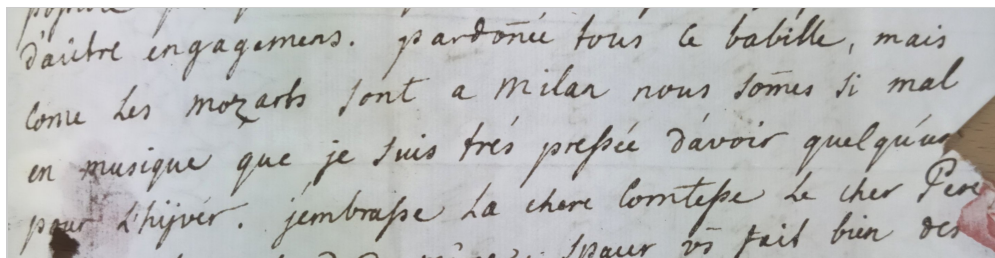 d'autre engagemens. pardoñée tous le babille, mais
come les mozarts sont a milan nous som̃es si mal
en musique que je suis trés pressée d'avoir quelqu'un
pour l'hÿvér. j'embrasse la chere Comtesse le cher Pere
spaur vs̄ fait bien des